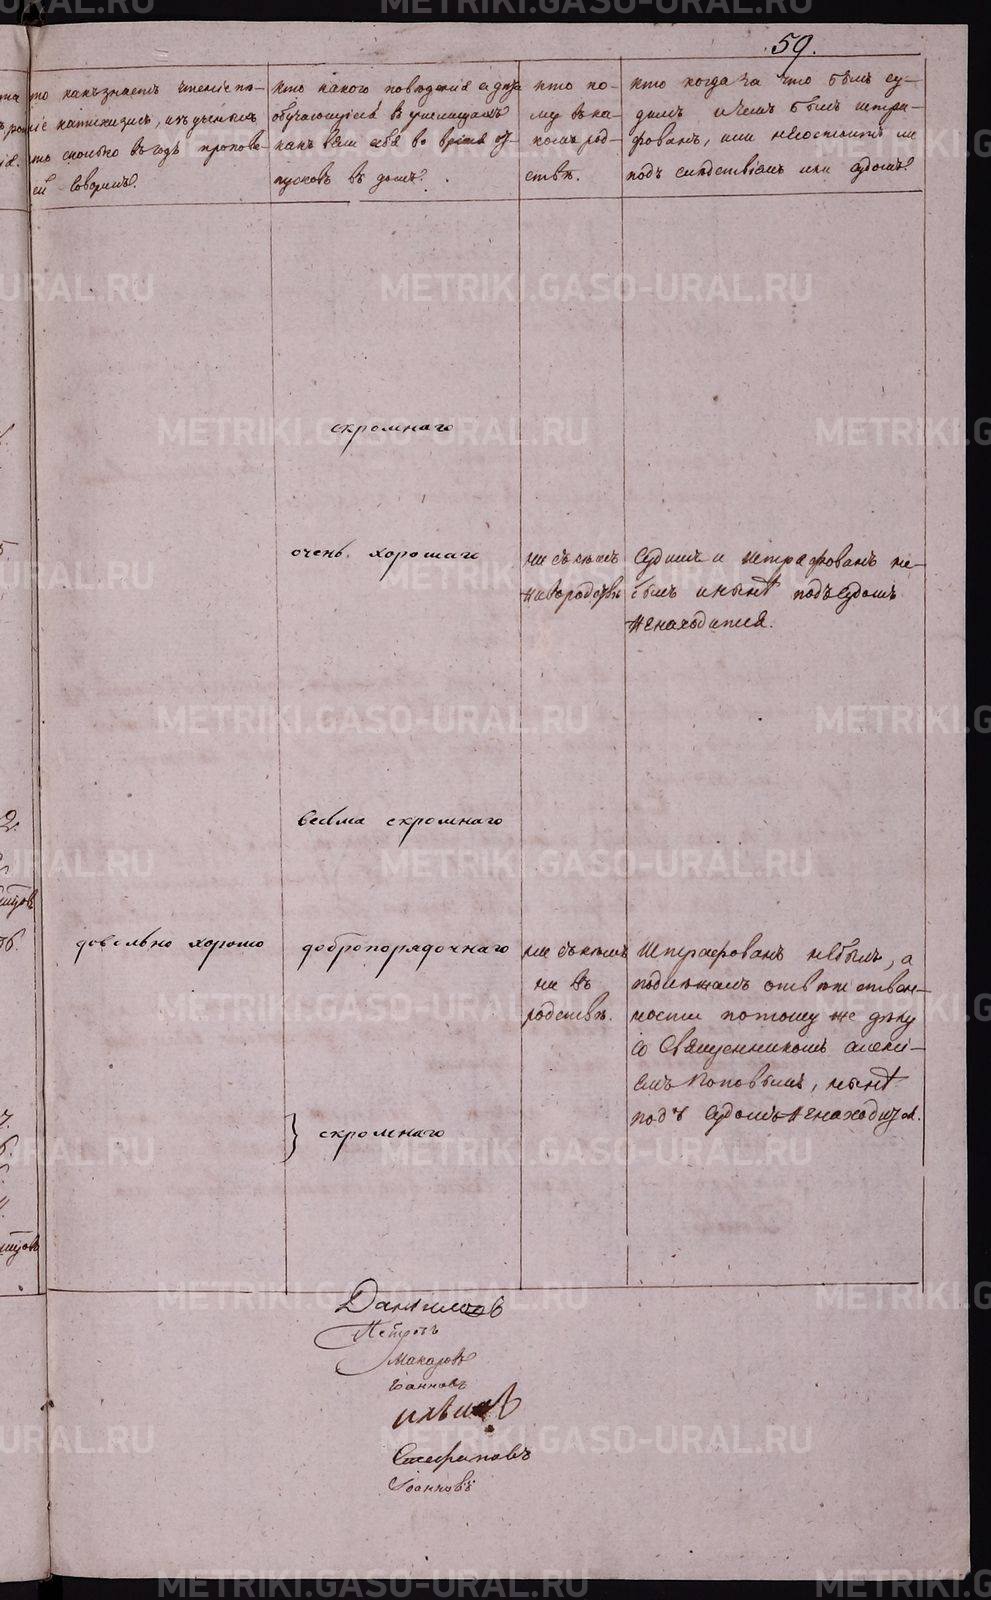 59.
кто какъ знаетъ чтеніе по-
катихизисъ, изъ ученыхъ
кто сколько въ годъ пропове-
дей говоритъ.
кто какого поведенія а дѣти
обучающіеся в училищахъ
какъ вели себя во время от-
пусковъ въ домъ.
кто ко-
му въ ка-
комъ род-
ствѣ.
кто когда за что былъ су-
димъ и чемъ былъ штра-
фованъ, или несостоитъ ли
подъ слѣдствіемъ или судомъ.
скромнаго
очень хорошаго
ни съ кемъ
не въ родствѣ
Судимъ и штрафованъ не-
былъ и нынѣ подъ судомъ
не находится.
весьма скромнаго
довольно хорошо
добропорядочнаго
ни съ кемъ
не въ
родствѣ.
Штрафованъ небылъ, а
подлежалъ ответствен-
ности потому же дѣлу
со Священникомъ Алекс-
емъ Поповымъ, нынѣ
подъ судомъ не находится.
скромнаго
Даниловъ
Петровъ
Макаровъ
Іоанновъ
Ильинъ
Стефановъ
Іоанновъ
METRIKI.GASO-URAL.RU